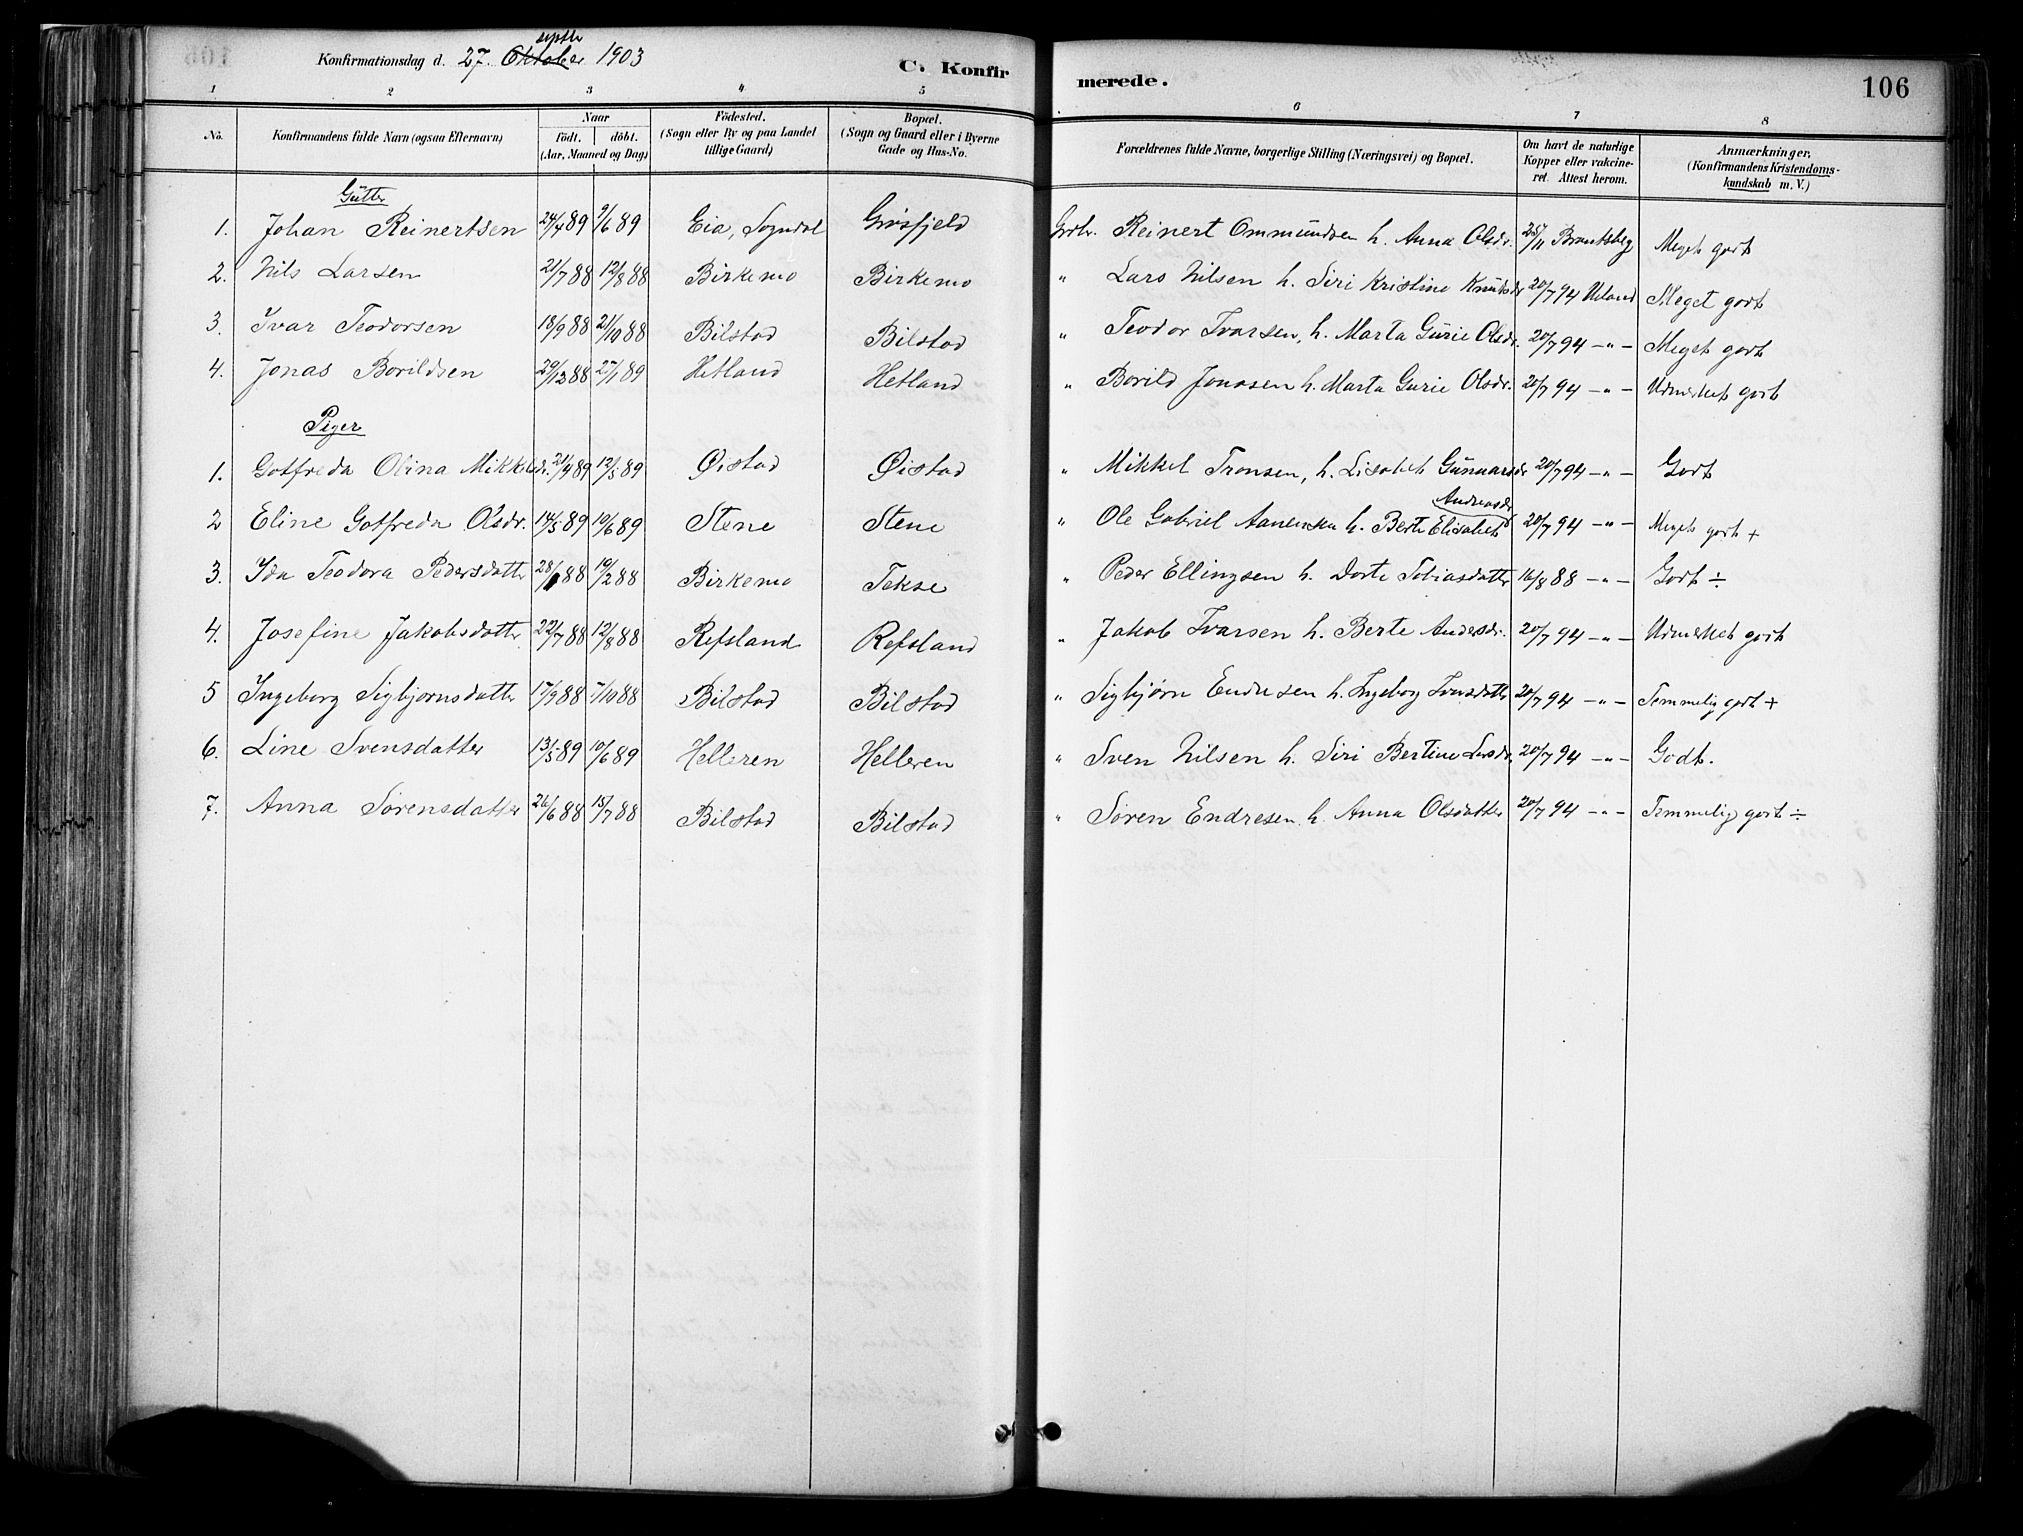 Konfirmationsdag d. 27. septbr Oktober 1903
C. Konfirmerede.
106
1 2 3 4 5 6 7 8
No. Konfirmandens fulde Navn (ogsaa Efternavn) Naar født. døbt. (Aar, Maaned og Dag) Fødested. (Sogn eller By og paa Landet tillige Gaard) Bopæl. (Sogn og Gaard eller i Byerne Gade og Hus-No. Forældrenes fulde Navne, borgerlige Stilling (Næringsvei) og Bopæl. Om havt de naturlige Kopper eller vakcineret. Attest herom. Anmærkninger, (Konfirmandens Kristendomskundskab m. V.)
Gutter
1. Johan Reinertsen 24/4 89 9/6 89 Eia, Sogndal Grøsfjeld Grdbr. Reinert Ommundsen h. Anna Olsdr. 25/11 Meget godt
2. Nils Larsen 21/7 88 12/8 88 Birkemo Birkemo " Lars Nilsen h. Siri Kristine Knutsdr 20/7 94 Ueland Meget godt
3. Ivar Teodorsen 18/9 88 21/10 88 Bilstad Bilstad " Teodor Ivarsen, h. Marta Gurie Olsdr. 20/7 94 -"- Meget godt
4. Jonas Borildsen 29/12 88 27/1 89 Hetland Hetland " Borild Jonasen h. Marta Gurie Olsdr. 20/7 94 -"- Udmerket godt
Piger
1. Gotfreda Olina Mikkelsdr. 21/4 89 12/5 89 Øistad Øistad " Mikkel Tronsen, h. Lisabet Gunnarsdr 20/7 94 -"- Godt
2 Eline Gotfreda Olsdr. 14/5 89 10/6 89 Stene Stene " Ole Gabriel Aanensen h. Berte Elisabet Andreasdr 20/7 94 -"- Meget godt +
3. Ida Teodora Pedersdatter 28/1 88 19/2 88 Birkemo Tekse " Peder Ellingsen h. Dorte Tobiasdatter 16/8 88 -"- Godt ÷
4. Josefine Jakobsdatter 22/7 88 12/8 88 Refsland Refsland " Jakob Ivarsen h. Berte Andersdr. 20/7 94 -"- Udmerket godt
5 Ingeborg Sigbjørnsdatter 17/9 88 7/10 88 Bilstad Bilstad " Sigbjørn Endresen h. Ingeborg Ivarsdatter 20/7 94 -"- Temmelig godt +
6. Line Svensdatter 13/5 89 10/6 89 Helleren Helleren " Sven Nilsen h. Siri Bertine Larsdr. 20/7 94 -"- Godt.
7. Anna Sørensdatter 26/6 88 15/7 88 Bilstad Bilstad " Søren Endresen h. Anna Olsdatter 20/7 94 -"- Temmelig godt ÷